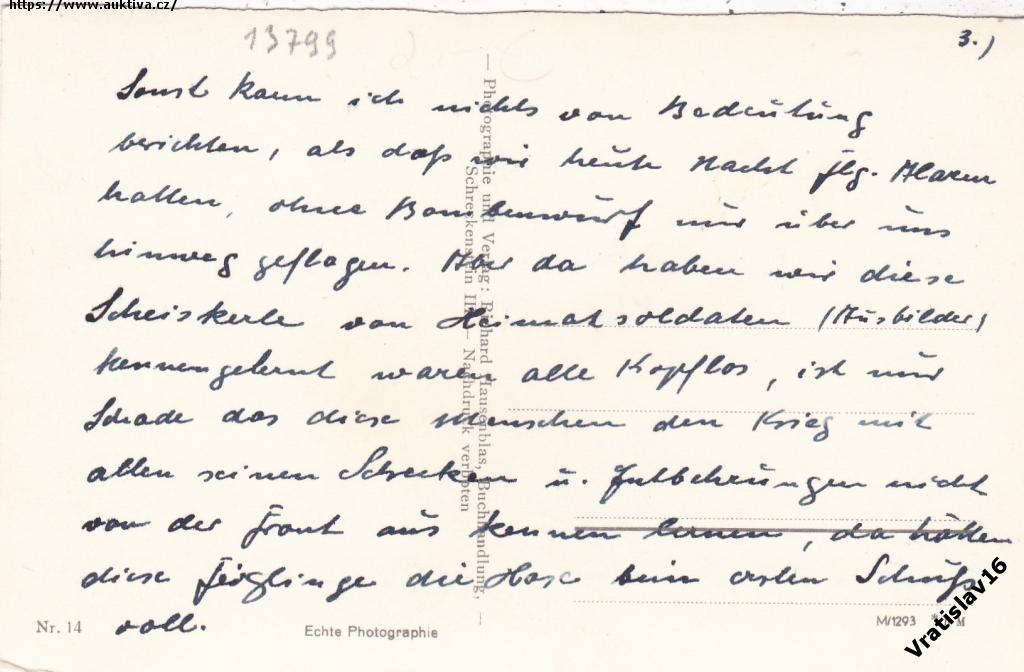 https://www.auktiva.cz/
13799
3.)
Sonst kann ich nichts von Bedeutung
berichten, als daß wir heute Nacht flg. Alarm
hatten, ohne Bombenwurf nur über uns
hinweg geflogen. Aber da haben wir diese
Scheiskerle von Heimatsoldaten (Ausbilder)
kennengelernt waren alle Kopflos, ist nur
Schade das diese Menschen den Krieg mit
allen seinen Schrecken u. Entbehrungen nicht
von der Front aus kennen lernen, da hätten
diese Feiglinge die Hose beim ersten Schuß
voll.
— Photographie und Verlag: Richard Hausenblas, Buchhandlung,
Schreckenstein III — Nachdruck verboten
Nr. 14
Echte Photographie
M/1293 * M
Vratislav16